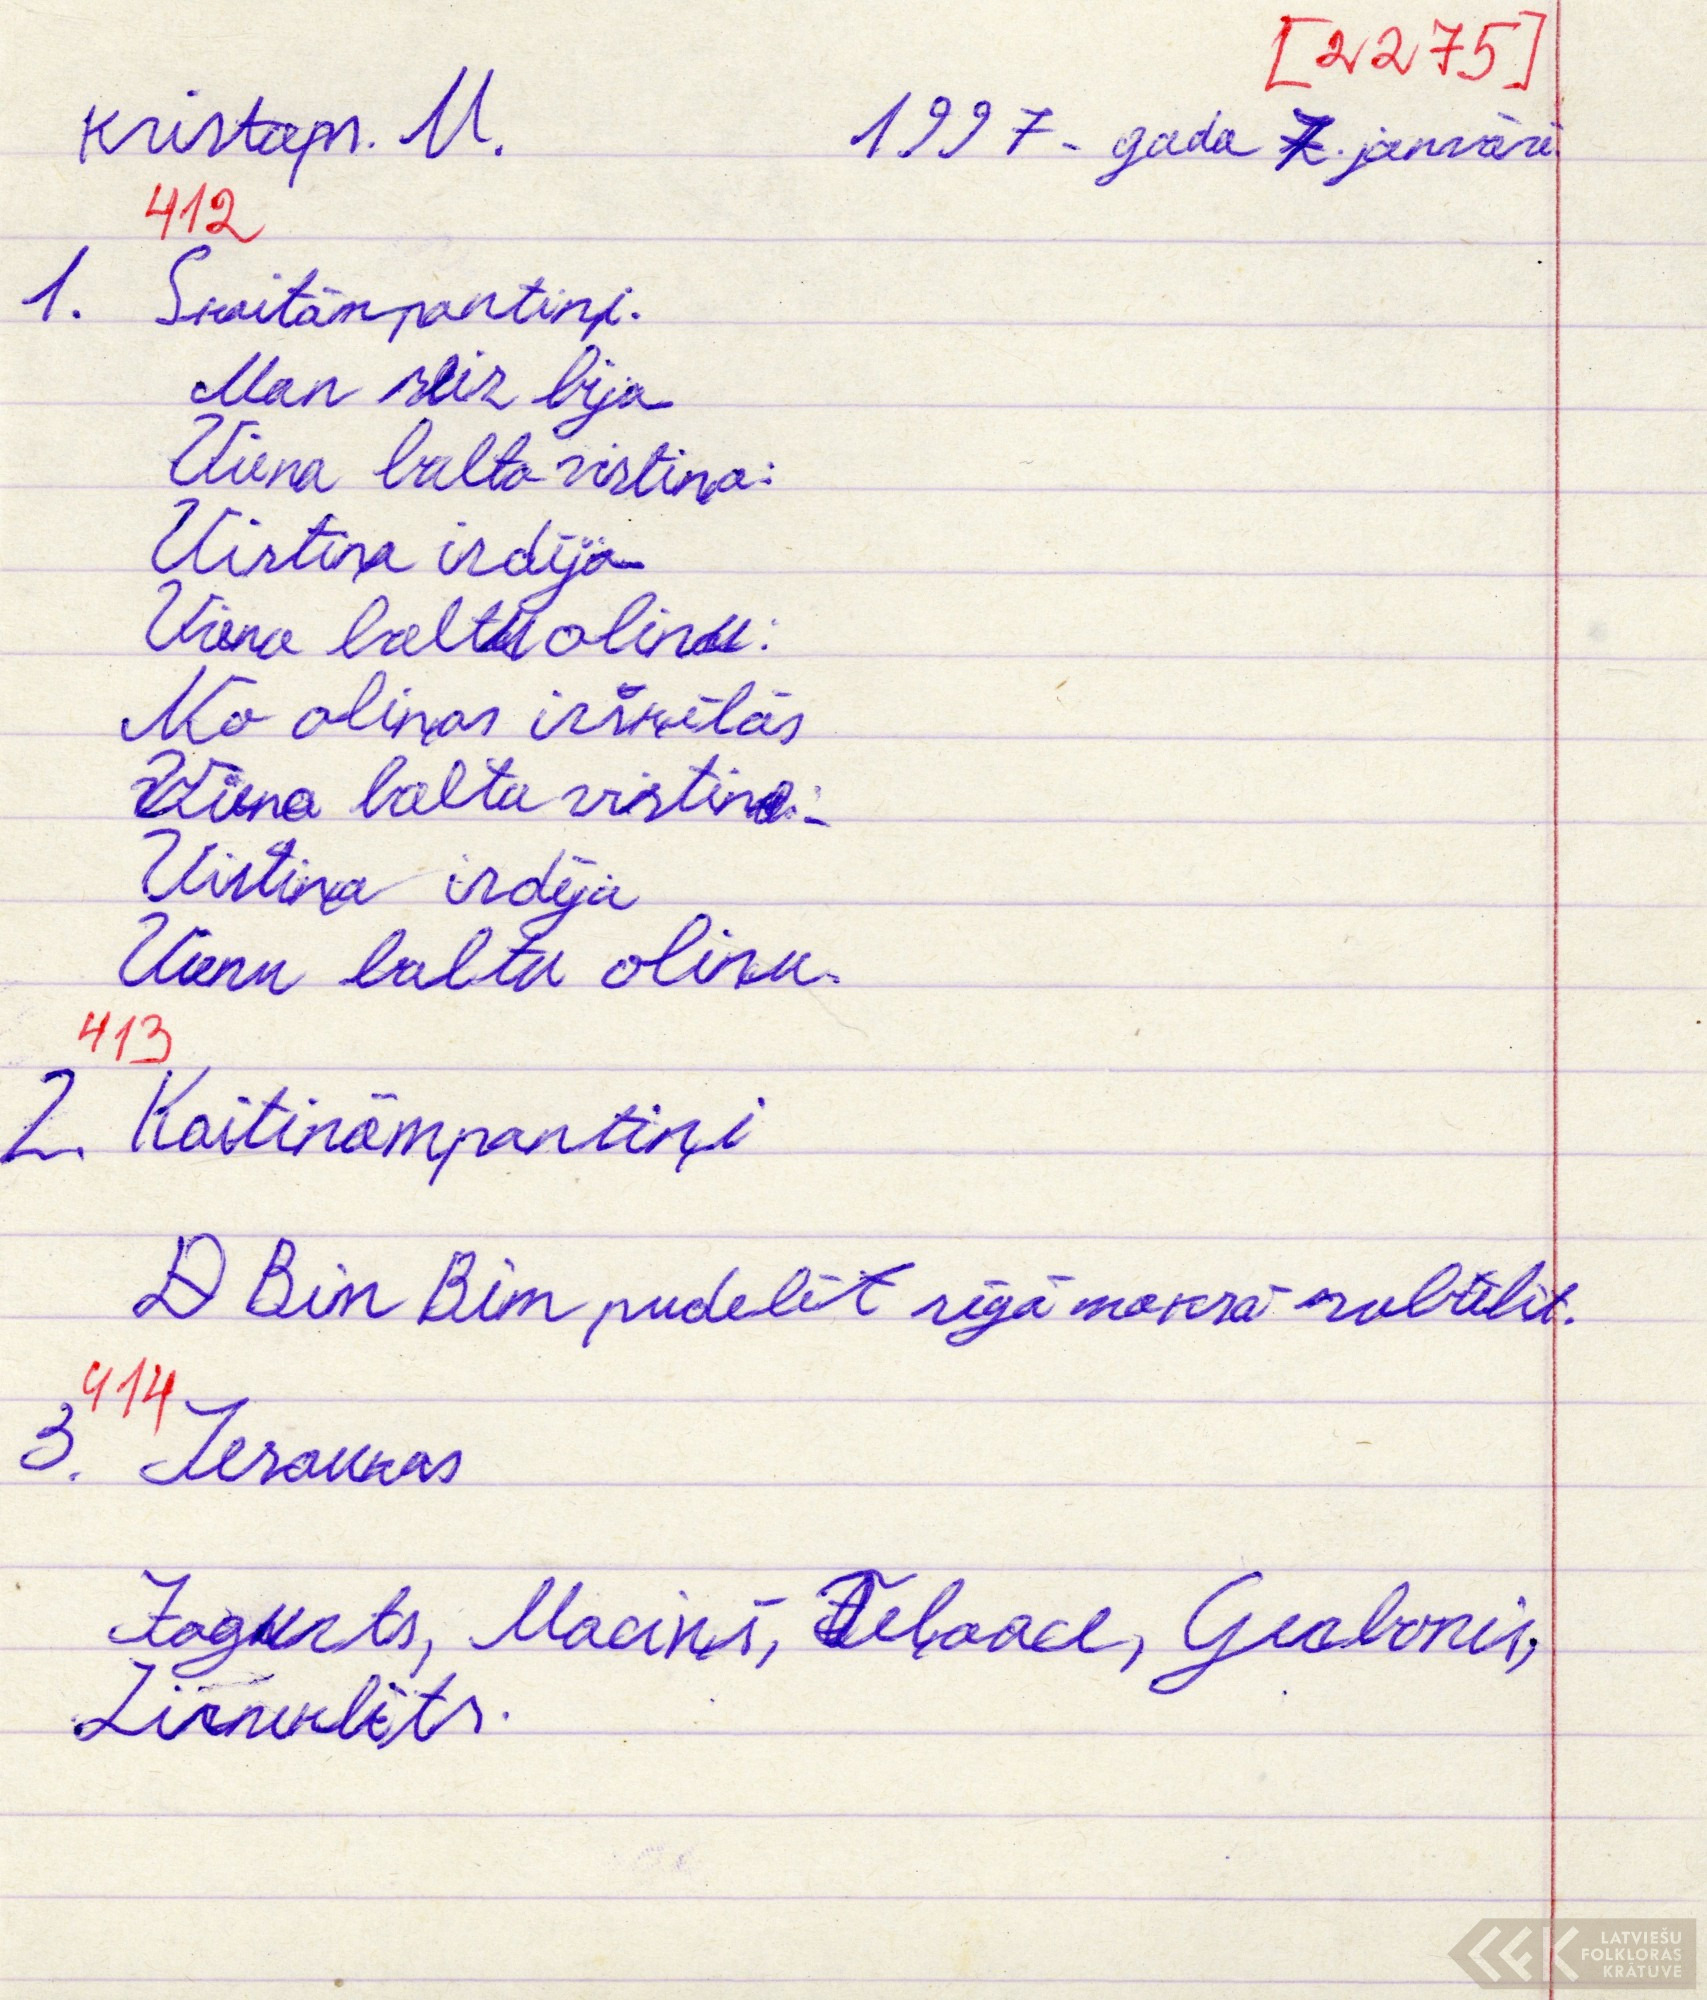 [2275]
Kristaps. M. 1997 - gada 7. janvārī
412
1. Skaitāmpantiņi.
Man reiz bija
Viena balta vistiņa:
Vistiņa izdēja
Viena baltu oliņu:
No oliņas izšķēlās
Viena balta vistiņa:
Vistiņa izdēja
Vienu baltu oliņu.
413
2. Kaitināmpantiņi
Bim Bim pudelīt rīgā maksā rubtelīt.
414
3. Iesaukas
Jogurts, Maciņš, Grabonis,
Zirneklīts.
LATVIEŠU
FOLKLORAS
KRĀTUVE